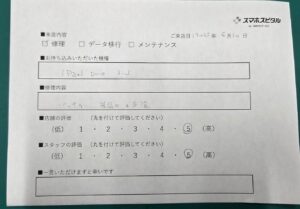 スマホスピタル
■来店内容 ご来店日 2025年 6月30日
☑ 修理 □ データ移行 □ メンテナンス
■お持ち込みいただいた機種
iPad
■修理内容
■店舗の評価 (丸を付けて評価してください)
(低) 1 ・ 2 ・ 3 ・ 4 ・ 5 (高)
■スタッフの評価 (丸を付けて評価してください)
(低) 1 ・ 2 ・ 3 ・ 4 ・ 5 (高)
■一言いただけますと幸いです